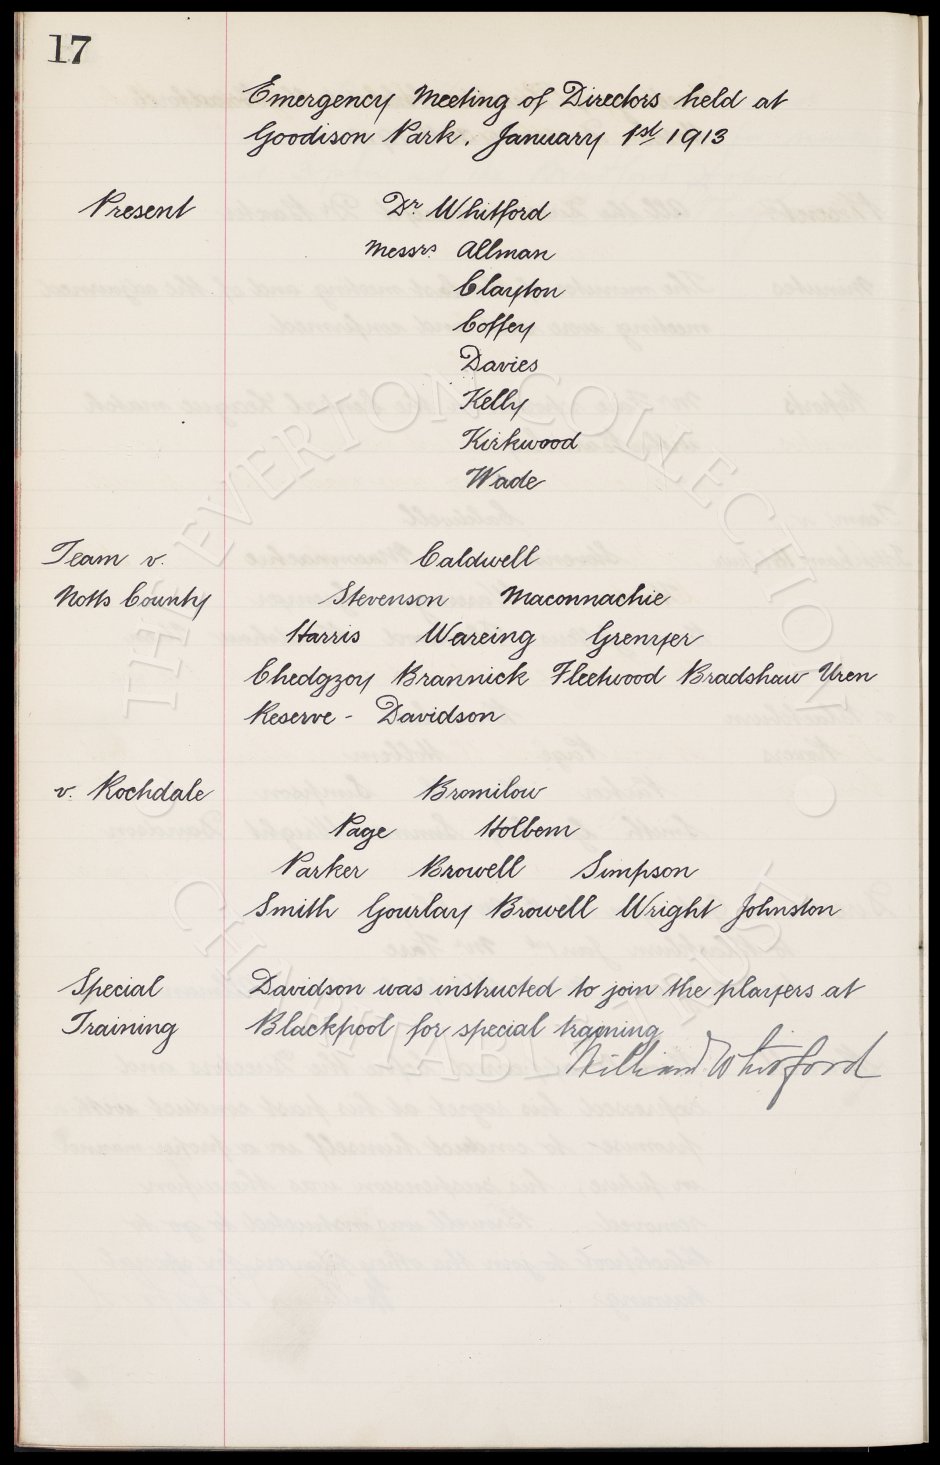 17
Emergency Meeting of Directors held at
Goodison Park. January 1st 1913
Present Dr Whitford
Messrs. Allman
Clayton
Coffey
Davies
Kelly
Kirkwood
Wade
Team v. Caldwell
Notts County Stevenson Maconnachie
Harris Wareing Grenyer
Chedgzoy Brannick Fleetwood Bradshaw Uren
Reserve - Davidson
v. Rochdale Bromilow
Page Holbem
Parker Browell Simpson
Smith Gourlay Browell Wright Johnston
Special Davidson was instructed to join the players at
Training Blackpool for special training
William Whitford
THE EVERTON COLLECTION
CHARITABLE TRUST